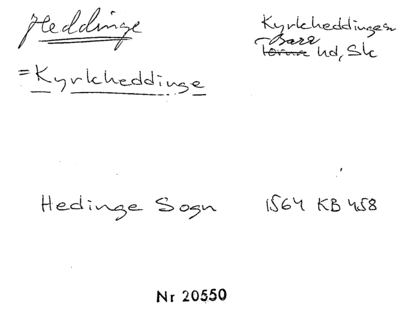 Heddinge
Kyrkheddinge sn
Bara
torna hd, Sk
= Kyrkheddinge
Hedinge Sogn 1564 KB 458
Nr 20550